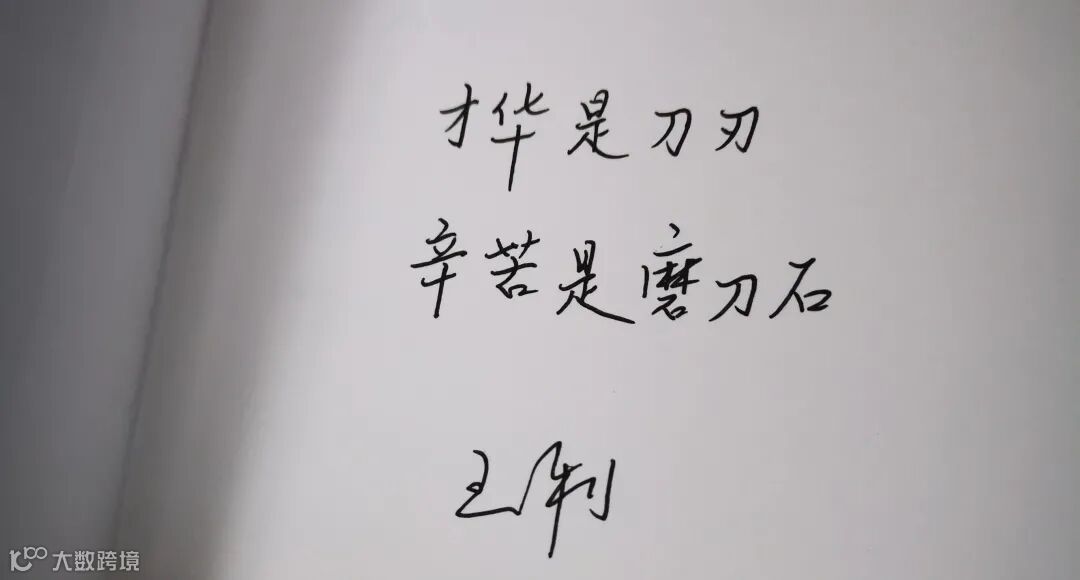 才华是刀刃
辛苦是磨刀石
大数跨境